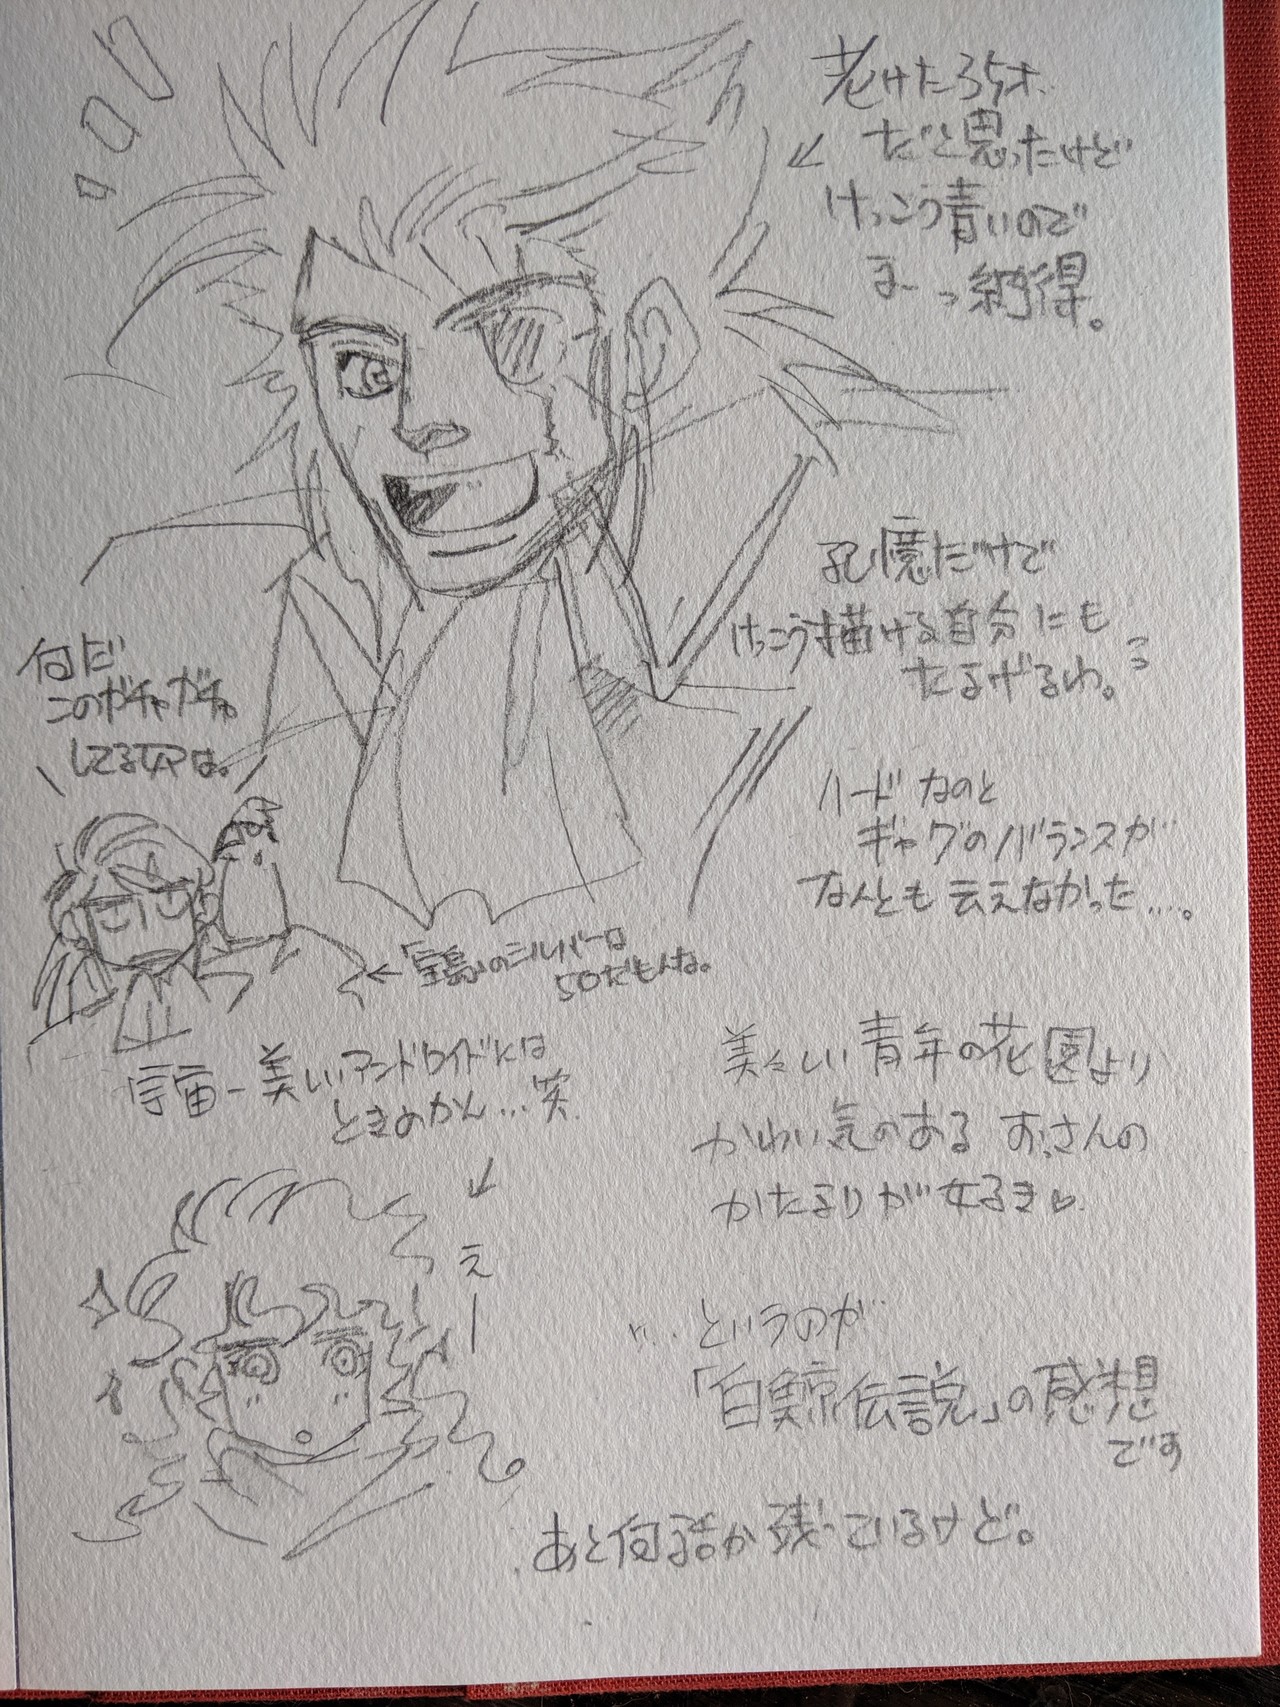 老けた35才
だと思ったけど
けっこう青いので
まーっ納得。
記憶だけで
けっこう描ける自分にも
たまげるわ。
何だ
このガチャガチャ
してるヤツは。
ハードなのと
ギャグのバランスが
なんとも云えなかった…。
←「宝島」のシルバーは
50だもんな。
宇宙一美しいアンドロイドには
ときめかん…笑
美々しい青年の花園より
かわい気のあるおっさんの
かたまりが好き♡
えー
…というのが
「白鯨伝説」の感想
です
あと何話か残っているけど。